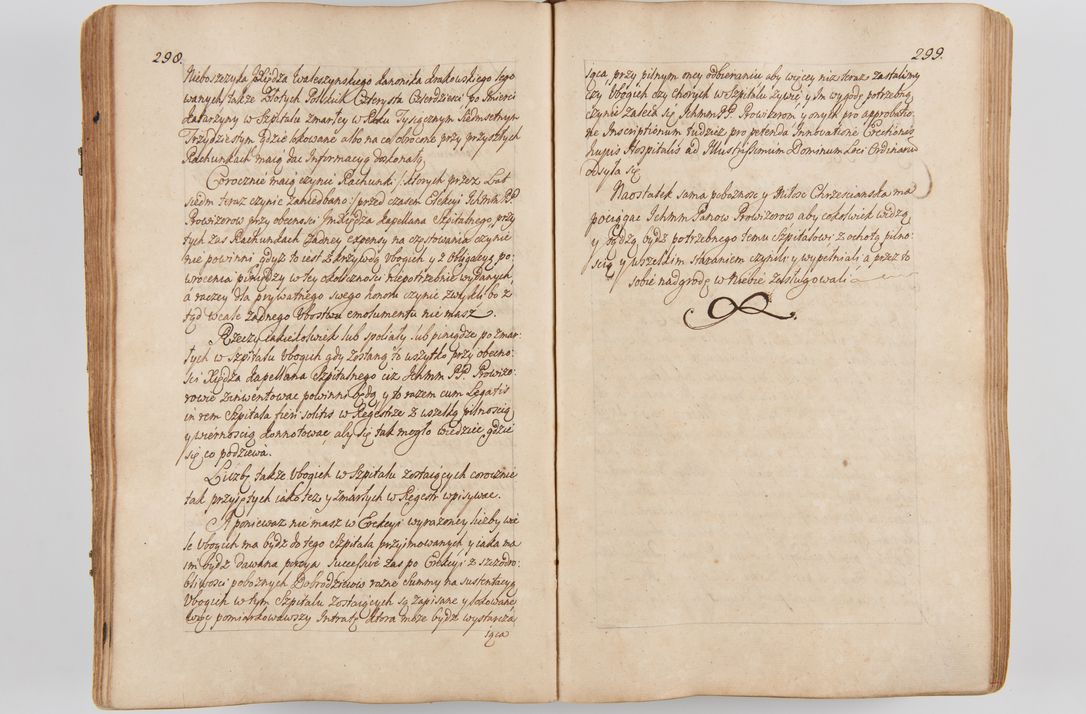 298.
Nieboszczyka Xiędza Waleszynskiego Kanonika Krakowskiego lego
wanych, także Złotych Polskich Czterysta Czterdzieści po Smierci
Katarzyny w Szpitalu zmarłey w Roku Tysiącznym Siedmsetnym
Trzydziestym gdzie lokowane albo na co obrocone przy przyszłych
Rachunkach maią dac Informacyą doskonałą.
Corocznie maią czynic Rachunki /: ktorych przez Lat
siedm teraz czynic zaniedbano :/ przed czasem Elekcyi Ichmm PP
Prowizorow przy obecnosci Im Xiędza Kapellana Szpitalnego, przy
tych zas Rachunkach żadney expensy na częstowania czynic
nie powinni gdyż to iest z krzywdą Vbogich y z obligacyą po-
wrocenia pieniędzy w tey okoliczności niepotrzebnie wydanych
a raczey dla prywatnego swego honoru czynic zwykli bo z
tąd wcale żadnego Vbostwu emolumentu nie masz.
Rzeczy iakieżkolwiek lub spoliały lub pieniądze po zmar-
łych w Szpitalu Vbogich gdy zostaną to wszytko przy obecno-
ści Xiędza Kapellana Szpitalnego ciz Ichmm PP. Prowizo-
rowie zinwentowac powinni będą y to razem cum Legatis
in rem Szpitala fieri solitis w Regestrze z wszelką pilnoscią
y wiernoscią konnotowac, aby się tak mogło wiedziec gdzie
się co podziewa.
Liczbę także Vbogich w Szpitalu zostaiących corocznie
tak przyiętych iako też y zmarłych w Regestr wpisywac.
A ponieważ nie masz w Erekcyi wyrażoney liczby wie
le Vbogich ma bydź do tego Szpitala przyimowanych y iaka ma
im bydź dawana porcya Successive zas po Erekcyi z szczodro-
bliwosci pobożnych Dobrodzieiow rożne Summy na sustentacyą
Vbogich w tym Szpitalu zostaiących są zapisane y lokowane
więc pomiarkowawszy Intratę ktora może bydz wystarcza
iąca
299.
iąca przy pilnym oney odbieraniu aby więcey niz teraz zastalismy
czy Vbogich czy chorych w Szpitalu żywic y Im wygodę potrzebną
czynic zaleca się Ichmm PP Prowizorom y onych pro approbatio
ne Inscriptionum tudzież pro petenda Innovatione Erectionis
hujus Hospitalis ad Illustrissimum Dominum Loci Ordinarium
odsyła się.
Naostatek sama pobożnosc y Miłosc Chrzescianska ma
pociągac Ichmm Panow Prowizorow aby cokolwiek widzą
y będzą bydź potrzebnego temu Szpitalowi z ochotą pilno-
scią y wszelkim staraniem czynili y wypełniali a przez to
sobie nadgrodę w Niebie zasługowali